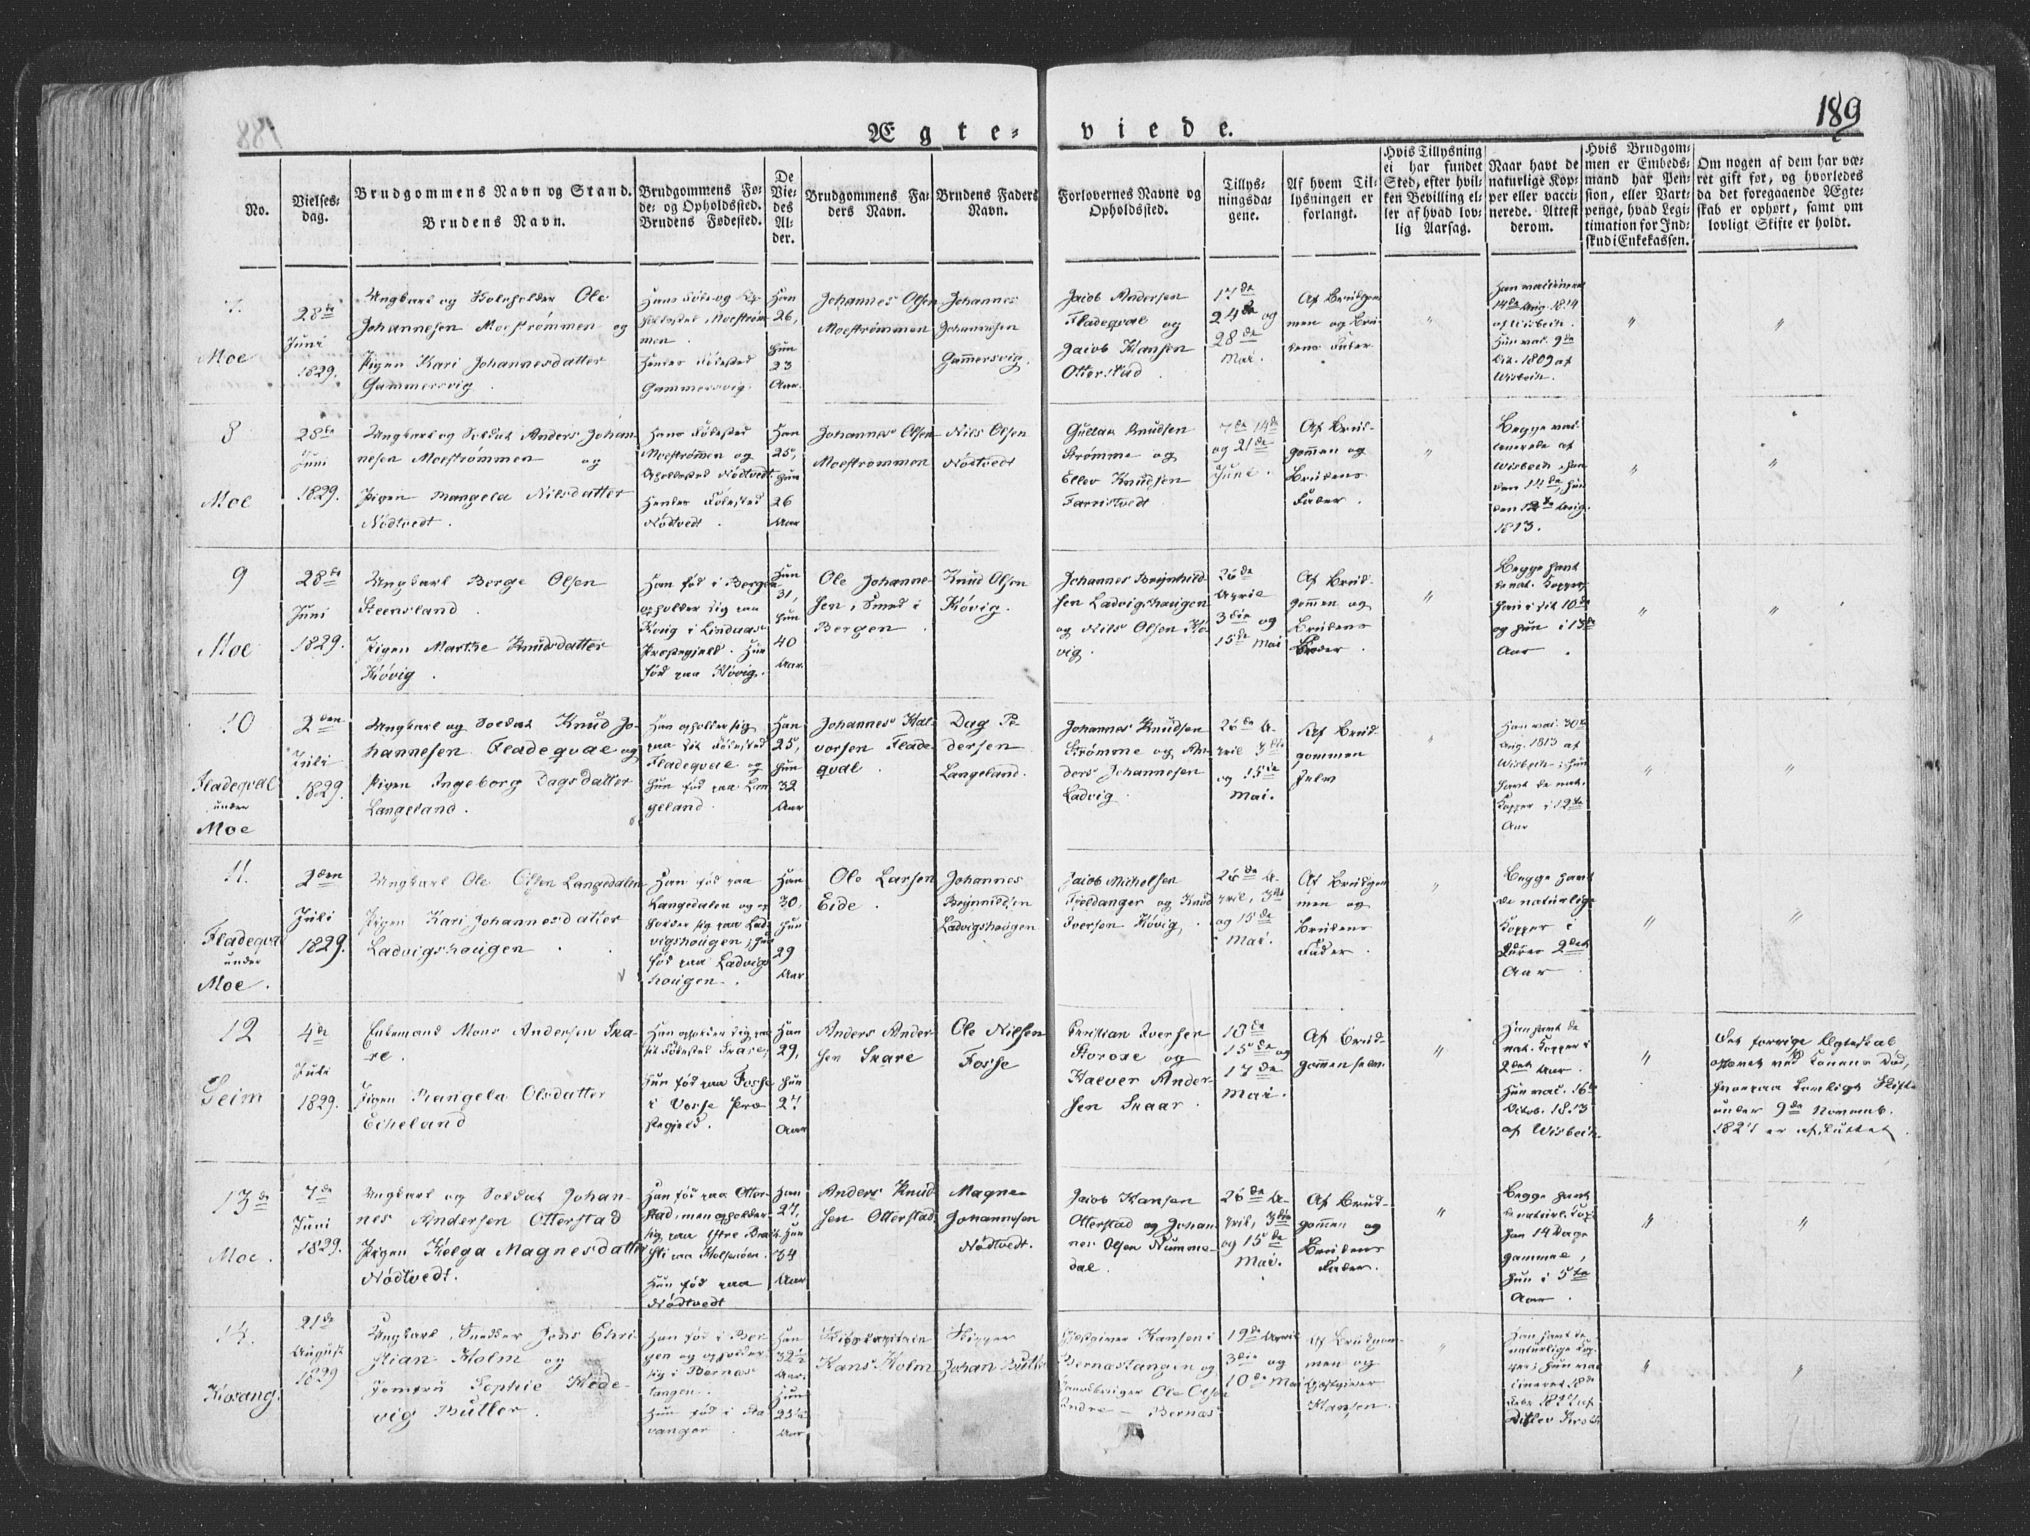 189
Ægte-viede.
No.
Vielses-
dag.
Brudgommens Navn og Stand.
Brudens Navn.
Brudgommens Fø-
de- og Opholdssted.
Brudens Fødested.
De
Vie-
des
Al-
der.
Brudgommens Fa-
ders Navn.
Brudens Faders
Navn.
Forlovernes Navne og
Opholdssted.
Tillys-
ningsda-
gene.
Af hvem Til-
lysningen er
forlangt.
Hvis Tillysning
ei har fundet
Sted, efter hvil-
ken Bevilling el-
ler af hvad lov-
lig Aarsag.
Naar havt de
naturlige Kop-
per eller vacci-
nerede. Attest
derom.
Hvis Brudgom-
men er Embeds-
mand har Pen-
sion, eller Vart-
penge, hvad Legi-
timation for Ind-
skud i Enkekassen.
Om nogen af dem har væ-
ret gift før, og hvorledes
da det foregaaende Ægte-
skab er ophørt, samt om
lovligt Skifte er holdt.
7.
Moe
28de
Juni
1829.
Ungkarl og Ole
Johannesen Moestrømmen og
Pigen Kari Johannesdatter
Gammersvig.
Hendes Fødested
Gammersvig.
Han
26,
Hun
23
Aar.
Johannes Olsen
Moestrømmen
Johannes
Johannesen
Gammersvig.
Jacob Andersen
Fladeqval og
Jacob Hansen
Otterstad
17de
24de og
28de
Mai.
Af Brudgom-
men og Bru-
dens Fader
14de Aug. 1814
af Wisbech.
Hun vac. 9de
Oct. 1809 af
Wisbech.
8
Moe
28de
Juni
1829.
Ungkarl og Soldat Anders Johan-
nesen Moestrømmen og
Pigen Mangela Nilsdatter
Nödtvedt.
Hans Fødested
Moestrømmen og
Opholdssted Nödtvedt
Hendes Fødested
Nödtvedt.
Han
25,
Hun
26
Aar
Johannes Olsen
Moestrømmen
Nils Olsen
Nödtvedt
Gullak Knudsen
Strømme og
Ellev Knudsen
Farestvedt.
7de 14de
og 21de
Juni.
Af Brud-
gommen og
Brudens
Fader.
Begge vac-
cinerede af
Wisbech, han
den 17de, hun
den 12te Aug.
1813.
9
Moe
28de
Juni
1829.
Ungkarl Berge Olsen
Steensland.
Pigen Marthe Knudsdatter
Kövig.
Han fød i Bergen
opholder sig paa
Kövig i Lindaas
Præstegjeld. Hun
fød paa Kövig.
Han
31,
Hun
40
Aar.
Ole Johanne-
sen, Smed i
Bergen
Knud Olsen
Kövig.
Johannes Brynhild-
sen Ladvigshaugen
og Nils Olsen Kö-
vig.
26de
April
3die og
15de Mai
Af Brud-
gommen og
Brudens
Broder.
Begge havt
de nat. Kopper,
han i sit 10de
og hun i 13de
Aar.
10
Fladeqval
under
Moe
2den
Juli
1829.
Ungkarl og Soldat Knud Jo-
hannesen Fladeqval og
Pigen Ingeborg Dagsdatter
Langeland.
Han opholder sig
paa sit Fødested
Fladeqval og
hun fød paa Lan-
geland.
Han
25,
Hun
32
Aar
Johannes Hal-
vorsen Flade-
qval.
Dag Pe-
dersen
Langeland.
Johannes Knudsen
Strømme og An-
ders Johannesen
Ladvig.
26de A-
pril 3die
og 15de
Mai.
Af Brud-
gommen
selv
Han vac. 30te
Aug. 1813 af
Wisbech, hun
havt de nat.
Kopper i 12te
Aar
11.
Fladeqval
under
Moe.
2den
Juli
1829.
Ungkarl Ole Olsen Langedalen
Pigen Kari Johannesdatter
Ladvigshaugen
Han fød paa
Langedalen og op-
holder sig paa Lad-
vigshaugen, hun
fød paa Ladvigs-
haugen.
Han
30,
Hun
29
Aar
Ole Larsen
Eide.
Johannes
Brynnildsen
Ladvigshaugen
Jacob Michelsen
Fieldanger og Knud
Iversen Kövig.
26de A-
pril, 3die
og 15de
Mai.
Af Brudgom-
men og
Brudens
Fader.
Begge havt
de naturlige
Kopper i
deres 2det
Aar
12
Seim
4de
Juli
1829.
Enkemand Mons Andersen Ska-
re.
Pigen Mangela Olsdatter
Echeland
Han opholder sig paa
sit Fødested Skare,
Hun fød paa Fosse
i Vosse Præ-
stegjeld.
Han
29,
Hun
27
Aar
Anders Ander-
sen Skare
Ole Nilsen
Fosse
Christian Iversen
og
Halver Ander-
sen Skaar.
10de
15de og
17de
Mai.
Af Brud-
gommen selv
Han havt de
nat. Kopper i
2det Aar
Hun vac. 16de
Octob. 1813
af Wisbech.
Det forrige Egteskab
ophævet ved Konens Død,
hvorpaa lovligt Skifte
under 9de Novemb.
1827 er afsluttet.
13de
Moe.
7de
Juni
1829.
Ungkarl og Soldat Johan-
nes Andersen Otterstad
Pigen Helga Magnesdatter
Nödtvedt.
Han fød paa Otter-
stad, men opholder
sig paa
Hun fød paa
Nödtvedt
Han
27,
Hun
34
Aar
Anders Knud-
sen Otterstad
Magne
Johannesen
Nödtvedt.
Jacob Hansen
Otterstad og Johan-
nes Olsen Numme-
dal.
26de A-
pril, 3die
og 15de
Mai.
Af Brud-
gommen og
Brudens
Fader.
Begge havt
de naturl. Kop.
han 14 Dage
gammel,
hun i 5te
Aar.
14.
Hosang.
21de
August
1829
Ungkarl, Snedker Jens Chri-
stian Holm og
Jomfru Sophie Hede-
vig Butler.
Han fød i Ber-
gen og opholder
sig i Bernes-
tangen.
Hun fød i Sta-
vanger
Han
32½
Aar.
Hun
Aar
Skibskapitain
Hans Holm
Skipper
Johan Butler
Gjæstgiver Hansen i
Bernestangen og
Ole Olsen
Indre-Bernæs
19de April
3die og
10de Mai
Af Brudgom-
men og
Gjæstgiver
Hansen.
Han havt de
naturlige Kop-
per, hun vac-
cineret